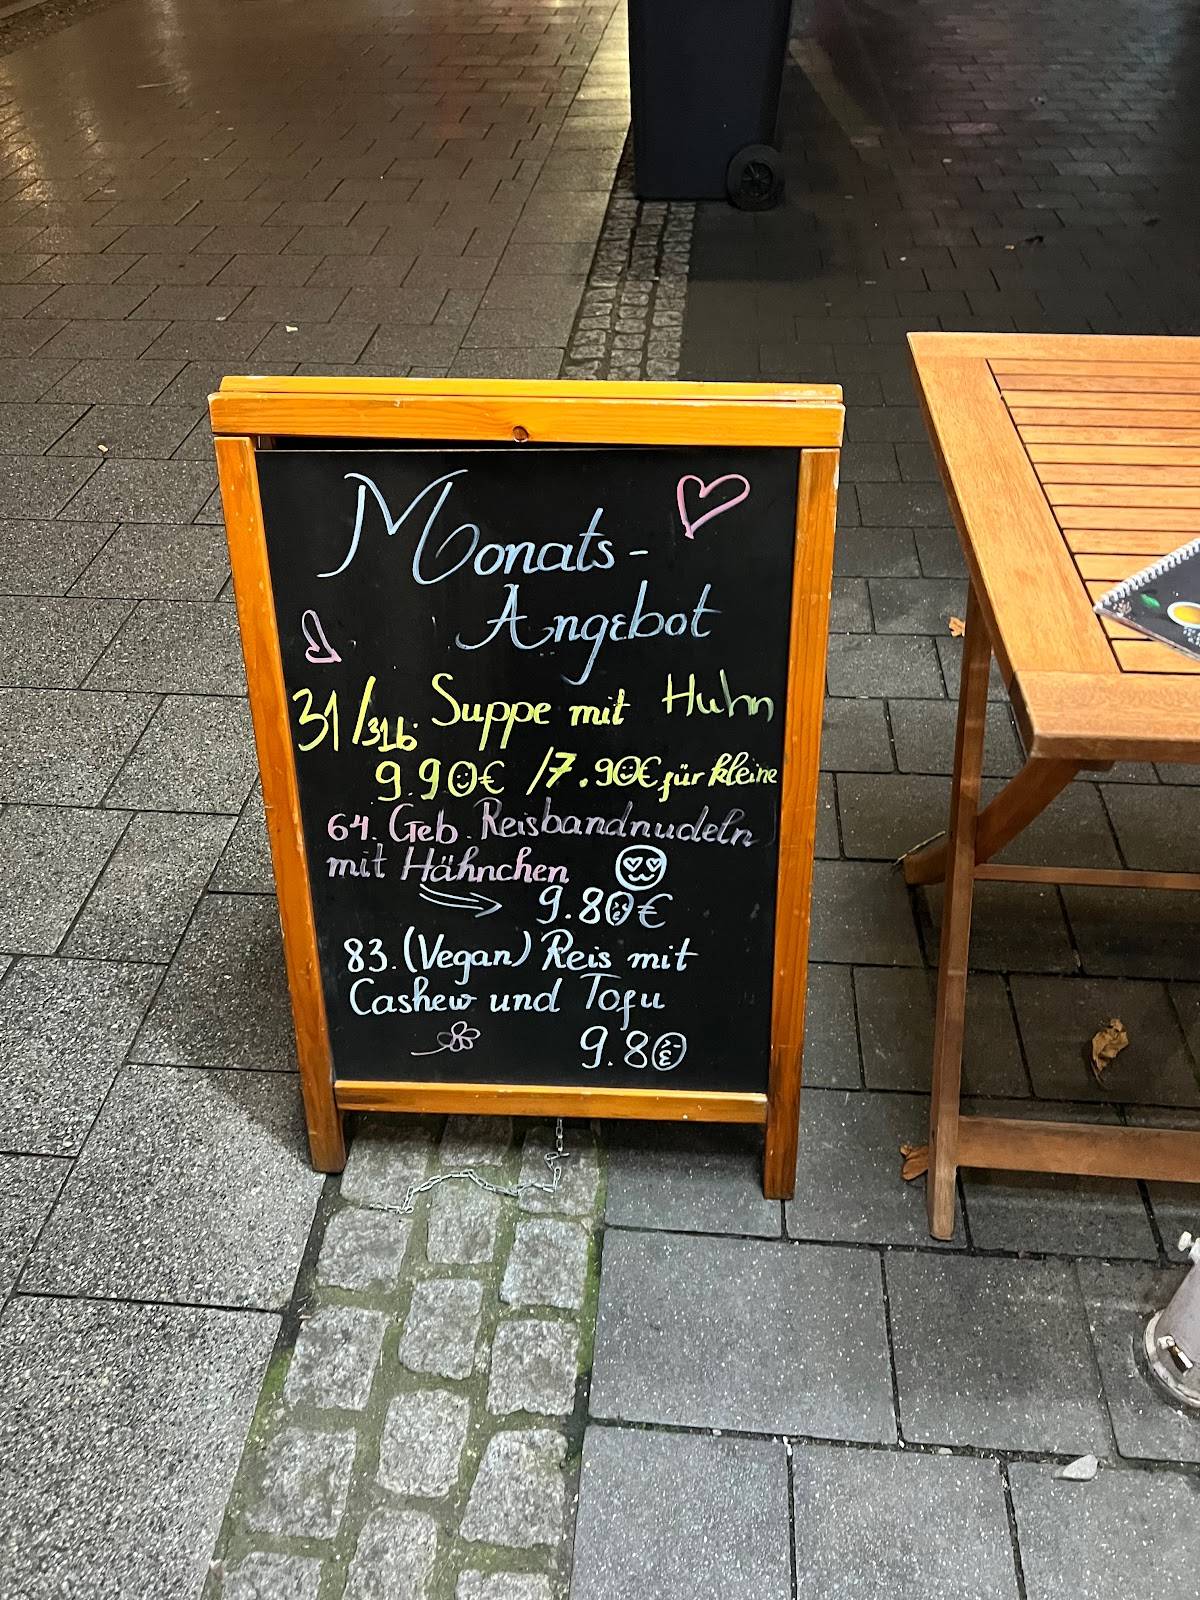 Monats-
Angebot
31/31b. Suppe mit Huhn
9.90€ /7.90€ für kleine
64. Geb. Reisbandnudeln
mit Hähnchen
9.80€
83. (Vegan) Reis mit
Cashew und Tofu
9.80